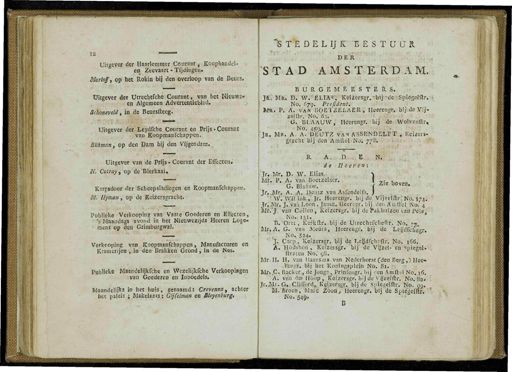 12
Uitgever der Haarlemmer Courant, Koophandel-
en Zeevaart-Tijdingen.
op het Rokin bij den overloop van de Beurs.
Uitgever der Utrechtsche Courant, van het Nieuws-
en Algemeen Advertentieblad.
Schoneveld, in de Beurssteeg.
Uitgever der Leydsche Courant en Prijs-Courant
van Koopmanschappen.
op den Dam bij den Vijgendam.
Uitgever van de Prijs-Courant der Effecten.
N. Cotray, op de Bierkaai.
Kargadoor der Scheepsladingen en Koopmanschappen.
M. Hijman, op de Keizersgracht.
Publieke Verkooping van Vaste Goederen en Effecten,
's Maandags avond in het Nieuwezijds Heeren Loge-
ment op den Grimburgwal.
Verkooping van Koopmanschappen, Manufacturen en
Kramerijen, in den Brakken Grond, in de Nes.
Publieke Maandelijksche en Wezelijksche Verkoopingen
van Goederen en Inboedels.
Maandelijks in het huis, genaamd: Crevenna, achter
het paleis; Makelaars: Gijselman en Biepenburg.
STEDELIJK BESTUUR
DER
STAD AMSTERDAM.
BURGEMEESTERS.
Jr. Mr. D. W. ELIAS, Keizersgr. bij de Spiegelstr.
No. 679. President.
Mr. P. A. VAN BOETZELAER, Heerengr. bij de Vij-
zelstr. No. 61.
G. BLAAUW, Heerengr. bij de Wolvenstr.
No.
Jr. Mr. A. A. DEUTZ VAN ASSENDELFT, Keizers-
gracht bij den Amstel No. 778.
RADEN.
de Heeren:
Jr. Mr. D. W. Elias.
Mr. P. A. van Boetzelaer.
G. Blaauw.
Jr. Mr. A. A. Deutz van Assendelft.
Zie boven.
W. Willink, Jr. Heerengr. bij de Vijzelstr No. 574.
Jr. Mr. J. van Loon, Jansz, Heerengr. bij den Amstel No. 4
Mr. J. van Collen, Keizersgr. bij de Pakhuizen van Pels,
No. 131.
B. Keizersgr. bij de Utrechtschestr. No. 17.
Mr. A. G. van Keizersgr. bij de Leijdschegr.
No. 524.
J. Carp, Keizersgr. bij de Leijdschestr. No. 366.
A. Hodshon, Keizersgr. bij de Vijzel- en Spiegel-
straten No. 98.
Mr. H. H. van Haersma van Nederhorst (den Berg,) Hee-
rengr. bij het Koningsplein No. 81.
Mr. C. Backer, de Jonge, Prinsengr. bij den Amstel No. 16.
A. van der Hoop, Keizersgr. bij de Vijzelstr. No.
Jr. Mr. G. Clifford, Keizersgr. bij de Spiegelstr. No. 99.
M. Broen, Marc Zoon, Heerengr. bij de Spiegelstr.
No. 549.
B